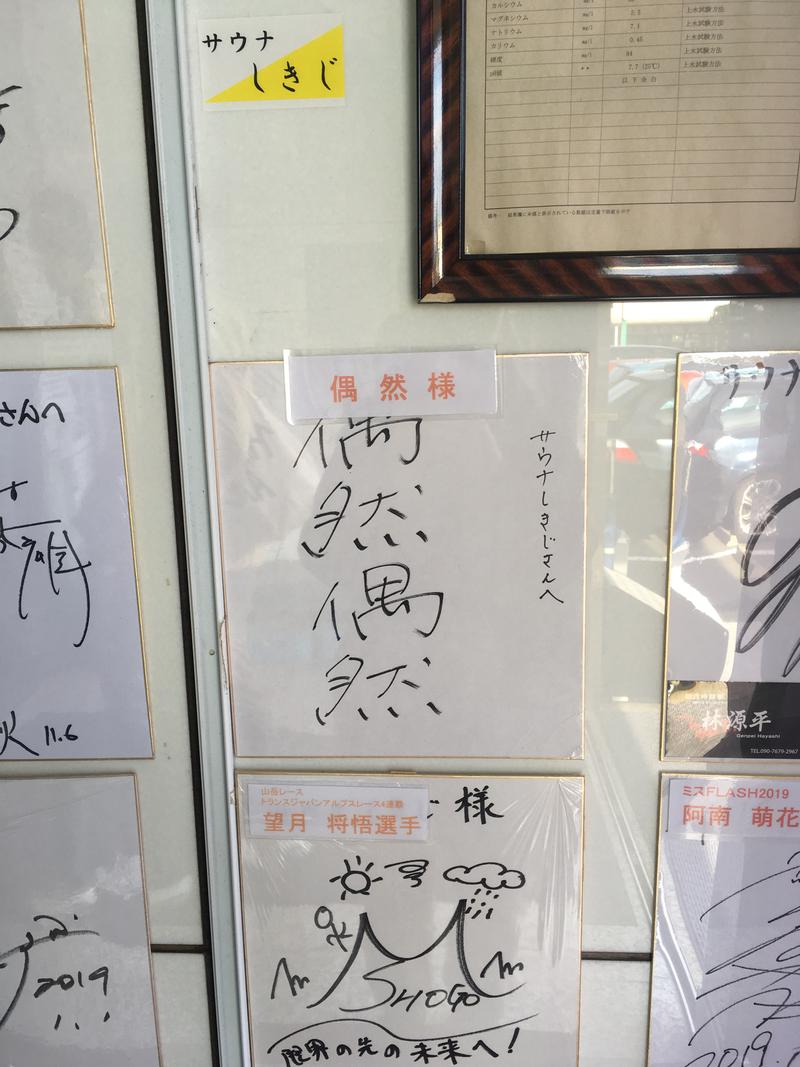 サウナ
しきじ
カルシウム mg/l
マグネシウム mg/l 上水試験方法
ナトリウム mg/l 7.1 上水試験方法
カリウム mg/l 0.45 上水試験方法
硬度 mg/l 84 上水試験方法
pH値 7.7 (25℃) 上水試験方法
以下余白
さんへ
11.6
2019
偶然様
サウナしきじさんへ
偶然
偶然
サウナ
林源平
Genpei Hayashi
TEL.090-7679-2967
山岳レース
トランスジャパンアルプスレース4連覇
望月 将悟選手
様
SHOGO
限界の先の未来へ!
ミスFLASH2019
阿南 萌花
2019.